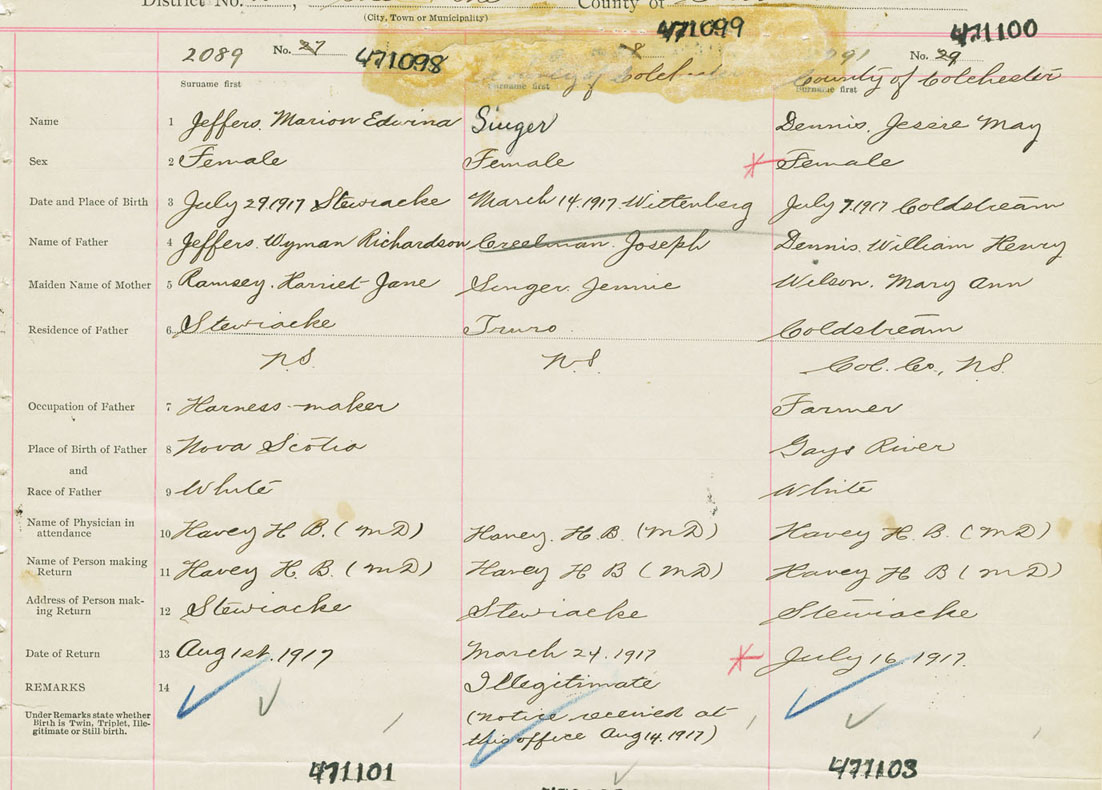 District No. County of
(City, Town or Municipality)
471099
471100
2089 No. 27 471098 8 No. 29
County of Colchester County of Colchester
Surname first Surname first Surname first
Name 1 Jeffers. Marion Edwina Singer Dennis. Jessie May
Sex 2 Female Female Female
Date and Place of Birth 3 July 29.1917 Stewiacke March 14.1917. Wittenberg July 7.1917 Coldstream
Name of Father 4 Jeffers. Wyman Richardson Creelman. Joseph Dennis. William Henry
Maiden Name of Mother 5 Ramsey. Harriet Jane Singer. Jennie Wilson. Mary Ann
Residence of Father 6 Stewiacke Truro. Coldstream
N.S. N.S. Col. Co., N.S.
Occupation of Father 7 Harness-maker Farmer
Place of Birth of Father 8 Nova Scotia Gays River
and
Race of Father 9 White White
Name of Physician in
attendance 10 Havey H B. (MD) Havey. H. B. (MD) Havey H. B. (MD)
Name of Person making
Return 11 Havey H. B. (MD) Havey H B (MD) Havey H B (MD)
Address of Person mak-
ing Return 12 Stewiacke Stewiacke Stewiacke
Date of Return 13 Aug 1st. 1917 March 24. 1917 July 16, 1917.
REMARKS 14 Illegitimate
Under Remarks state whether
Birth is Twin, Triplet, Ille-
gitimate or Still birth.
(Notice received at
this office Aug 14. 1917)
471101 471103